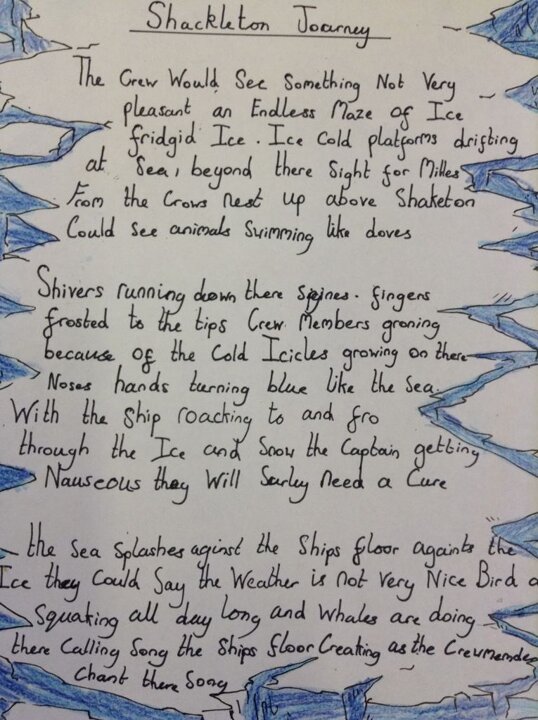 Shackleton Journey
The Crew Would See Something Not Very
pleasant an Endless Maze of Ice
fridgid Ice. Ice Cold platforms drifting
at Sea, beyond there Sight for Milles
From the Crows nest up above Shaketon
Could See animals Swimming like doves
Shivers running down there Spines. fingers
frosted to the tips Crew Members groning
because of the Cold Icicles growing on there
Noses hands turning blue like the Sea.
With the Ship roacking to and fro
through the Ice and Snow the Captain getting
Nauseous they Will Surley need a Cure
the Sea Splashes aginst the Ships floor againts the
Ice they Could Say the Weather is not Very Nice Bird a
Squaking all day long and Whales are doing
there Calling Song the Ships floor Creaking as the Crewmembe
Chant there Song